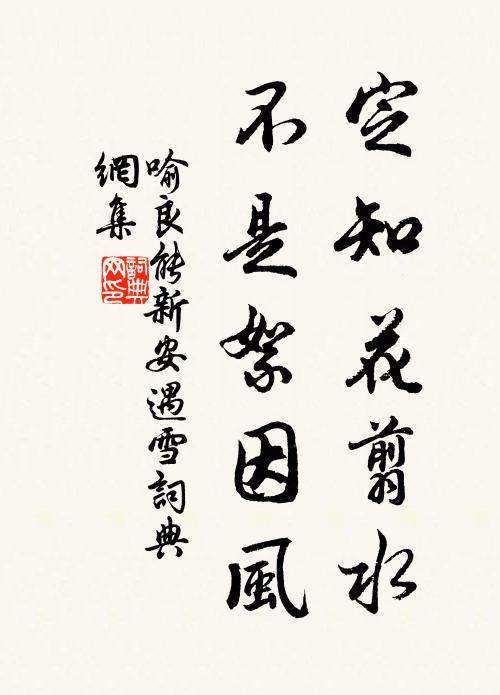 定知花剪水
不是絮因風
喻良能新安遇雪詞典
網集
詞典網印